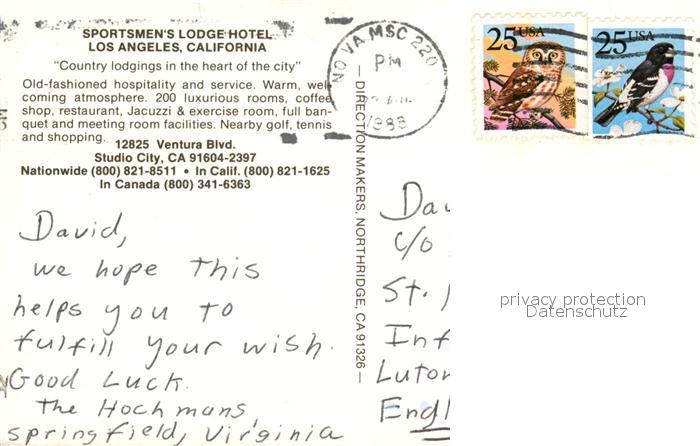 SPORTSMEN'S LODGE HOTEL
LOS ANGELES, CALIFORNIA
"Country lodgings in the heart of the city"
Old-fashioned hospitality and service. Warm, wel-
coming atmosphere. 200 luxurious rooms, coffee
shop, restaurant, Jacuzzi & exercise room, full ban-
quet and meeting room facilities. Nearby golf, tennis
and shopping.
12825 Ventura Blvd.
Studio City, CA 91604-2397
Nationwide (800) 821-8511 • In Calif. (800) 821-1625
In Canada (800) 341-6363
David,
we hope this
helps you to
fulfill your wish.
Good Luck.
The Hochmans,
Springfield, Virginia
— DIRECTION MAKERS, NORTHRIDGE, CA 91326 —
NO VA MSC 220
PM
1988
25 USA
25 USA
c/o
St.
Eng
privacy protection
Datenschutz